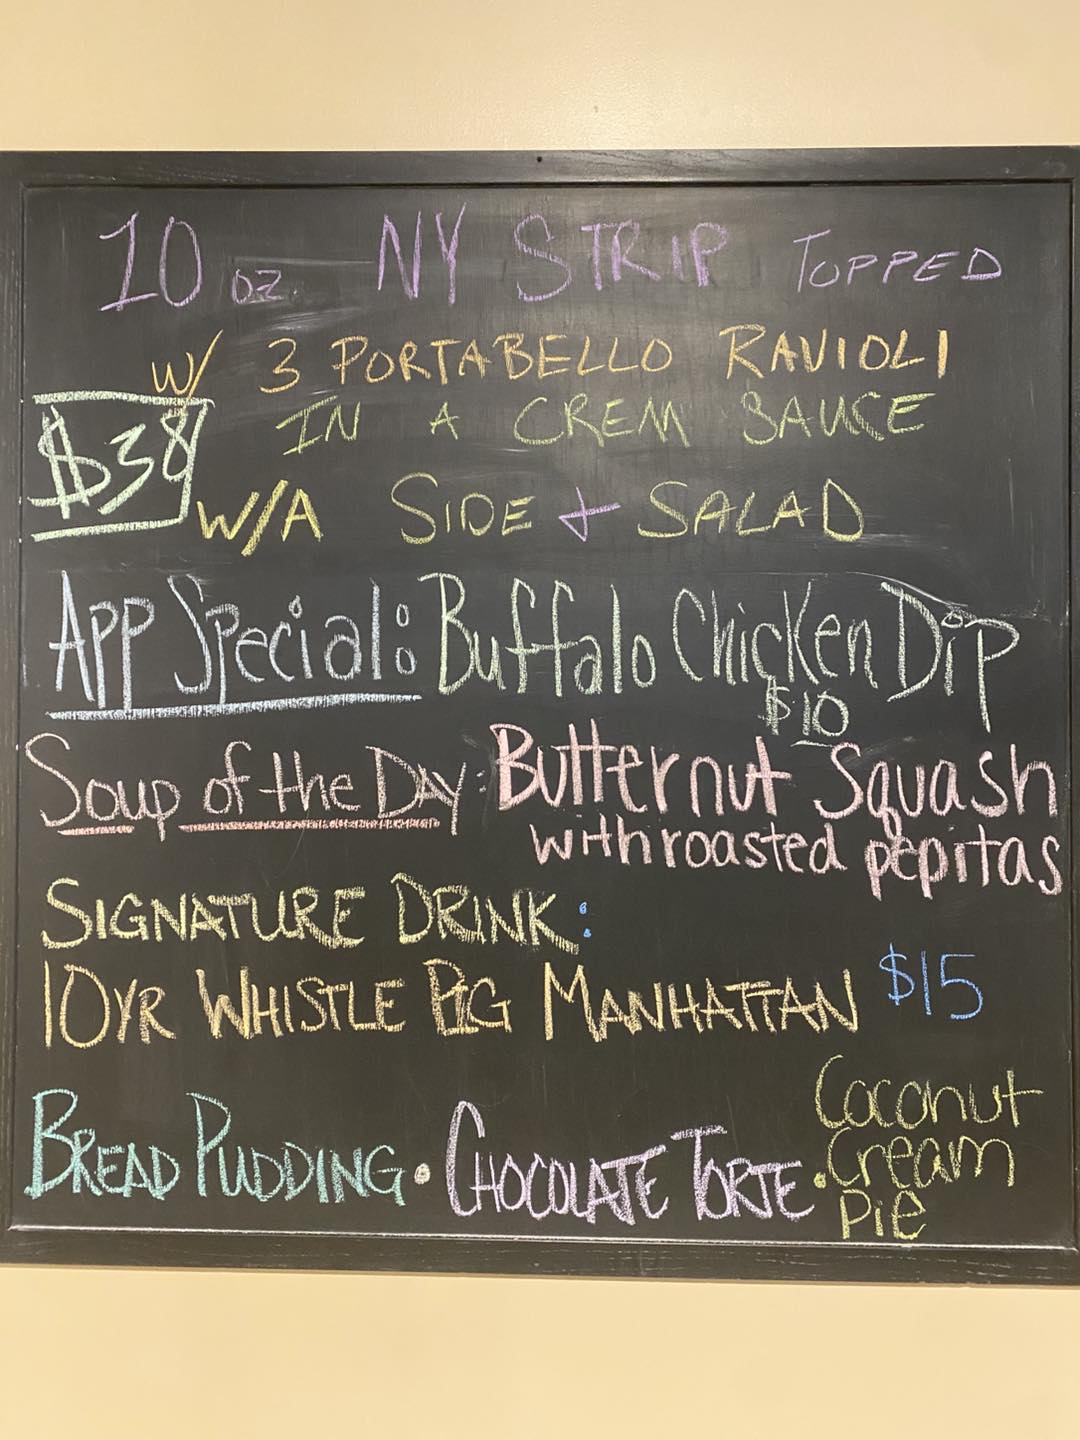 10 oz. NY STRIP TOPPED
W/ 3 PORTABELLO RAVIOLI
$38
IN A CREM SAUCE
W/A SIDE + SALAD
App Special: Buffalo Chicken Dip
$10
Soup of the Day: Butternut Squash
with roasted pepitas
SIGNATURE DRINK:
10YR WHISTLE PIG MANHATTAN $15
BREAD PUDDING • CHOCOLATE TORTE • Coconut
Cream
Pie